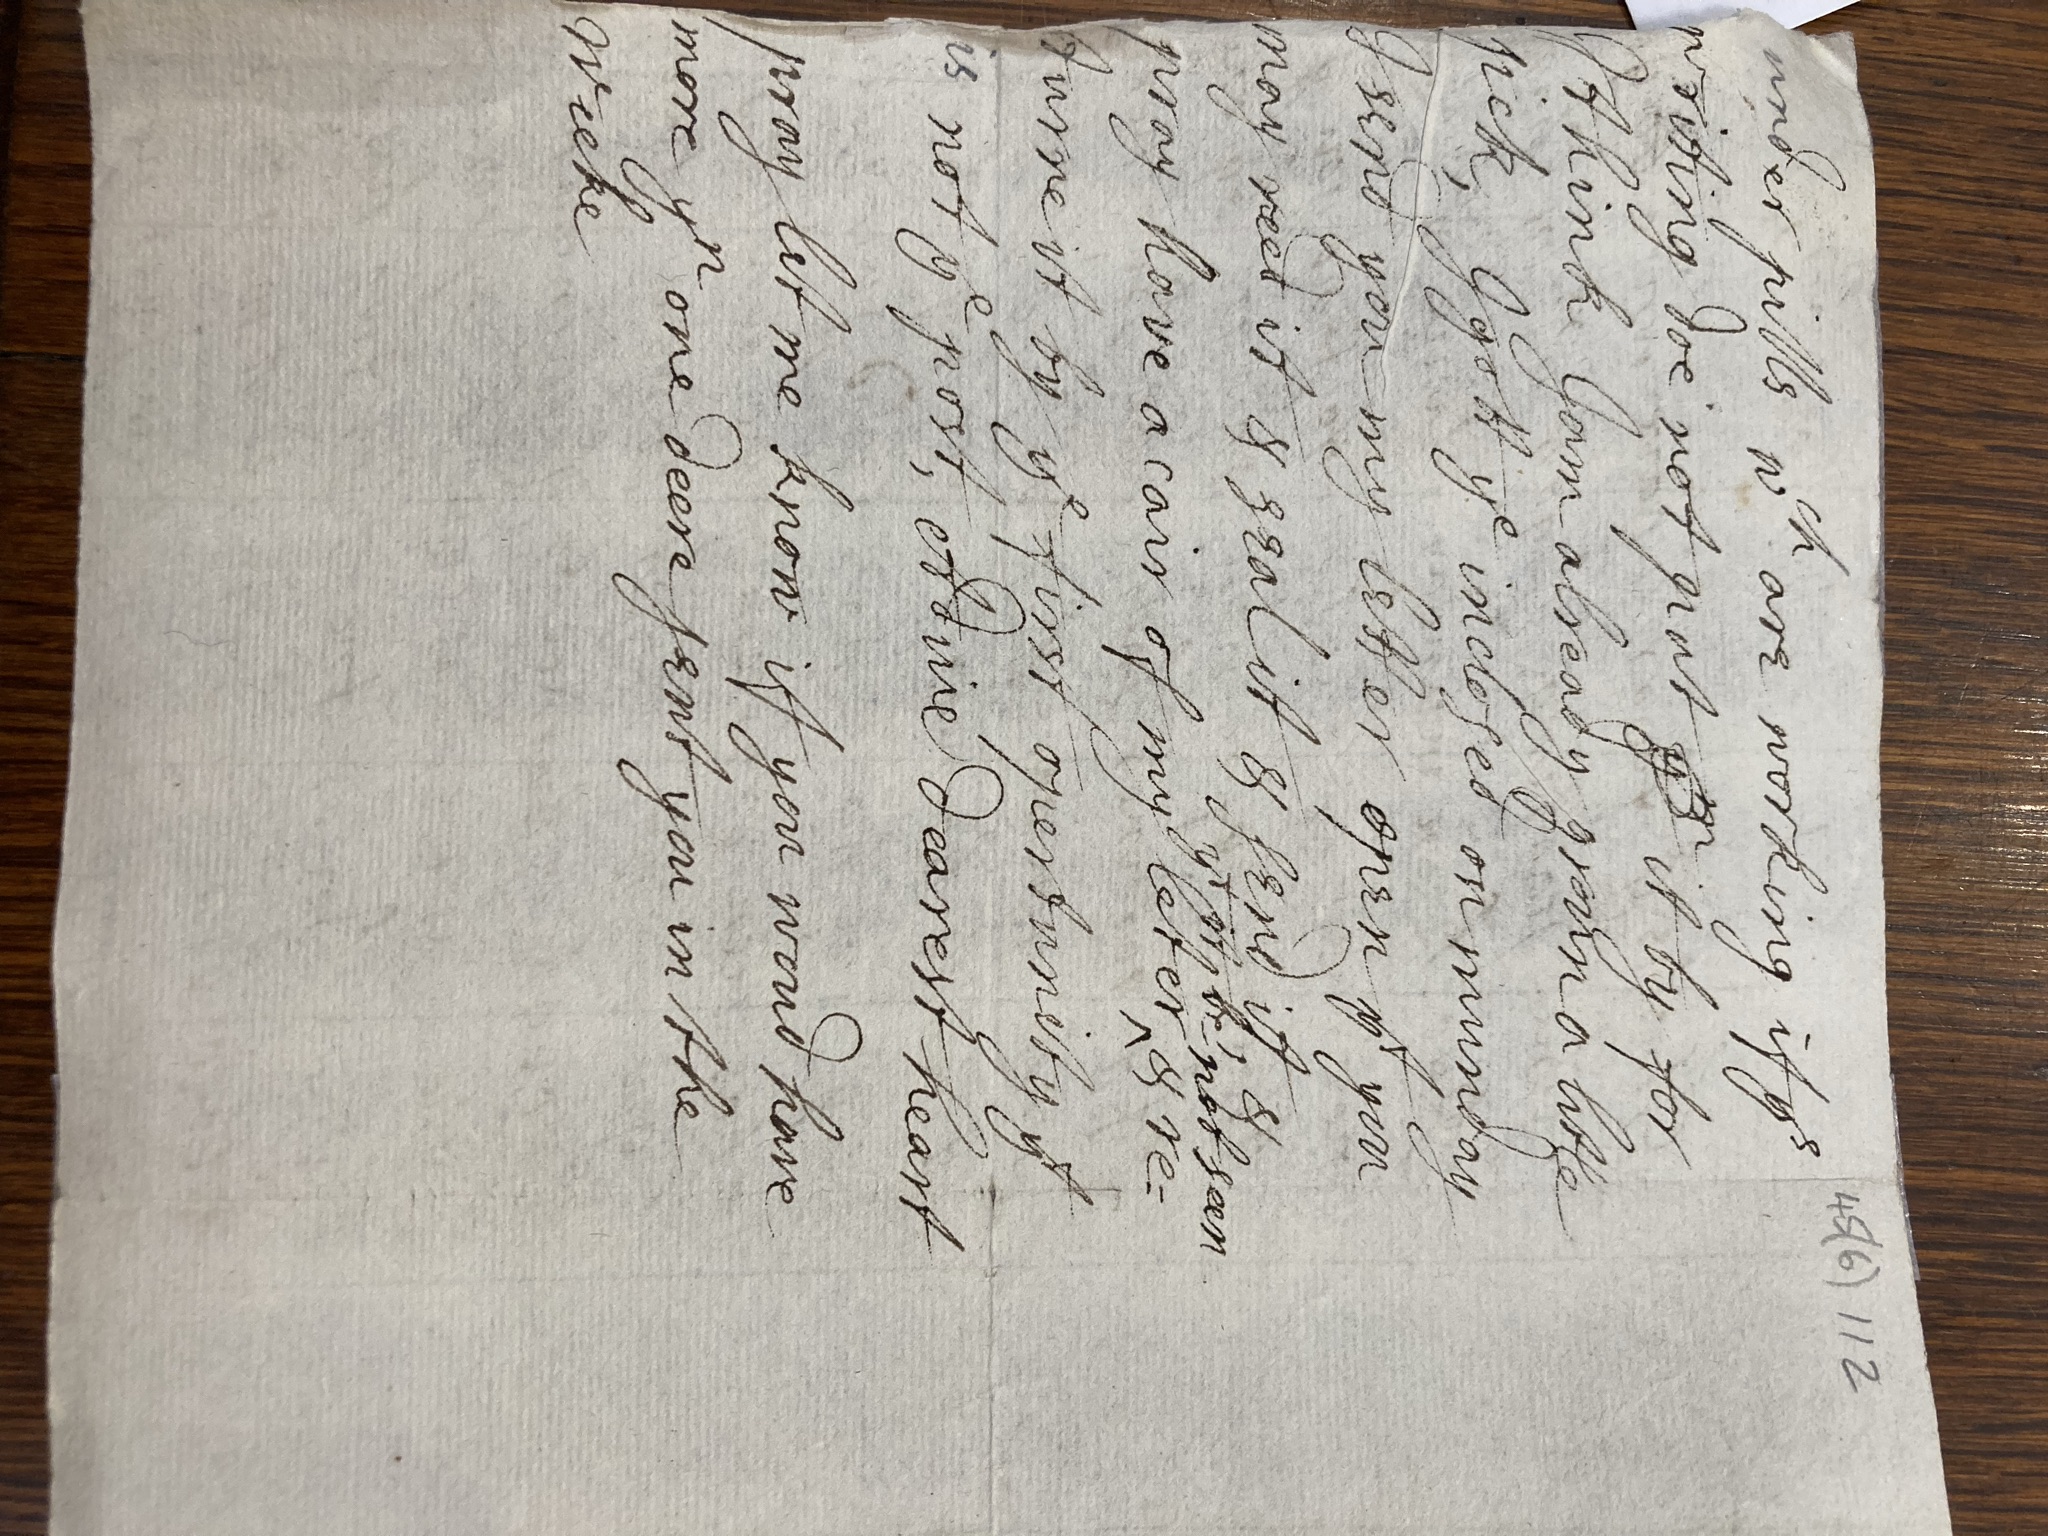 45(6) 112
under pills wch are working if ys
writing doe not put ym it by for
I think I am already groun a little
sick, I gott ye inclosed on munday
I send you my letter open yt you
may reed it & seal it & send it, &
yt it be not seen
pray have a cair of my leter ^ & re=
turne it by ye first opertunity yt
is not ye post, Adiue dearest heart
pray let me know if you woud have
more yn one deere sent you in the
wieke